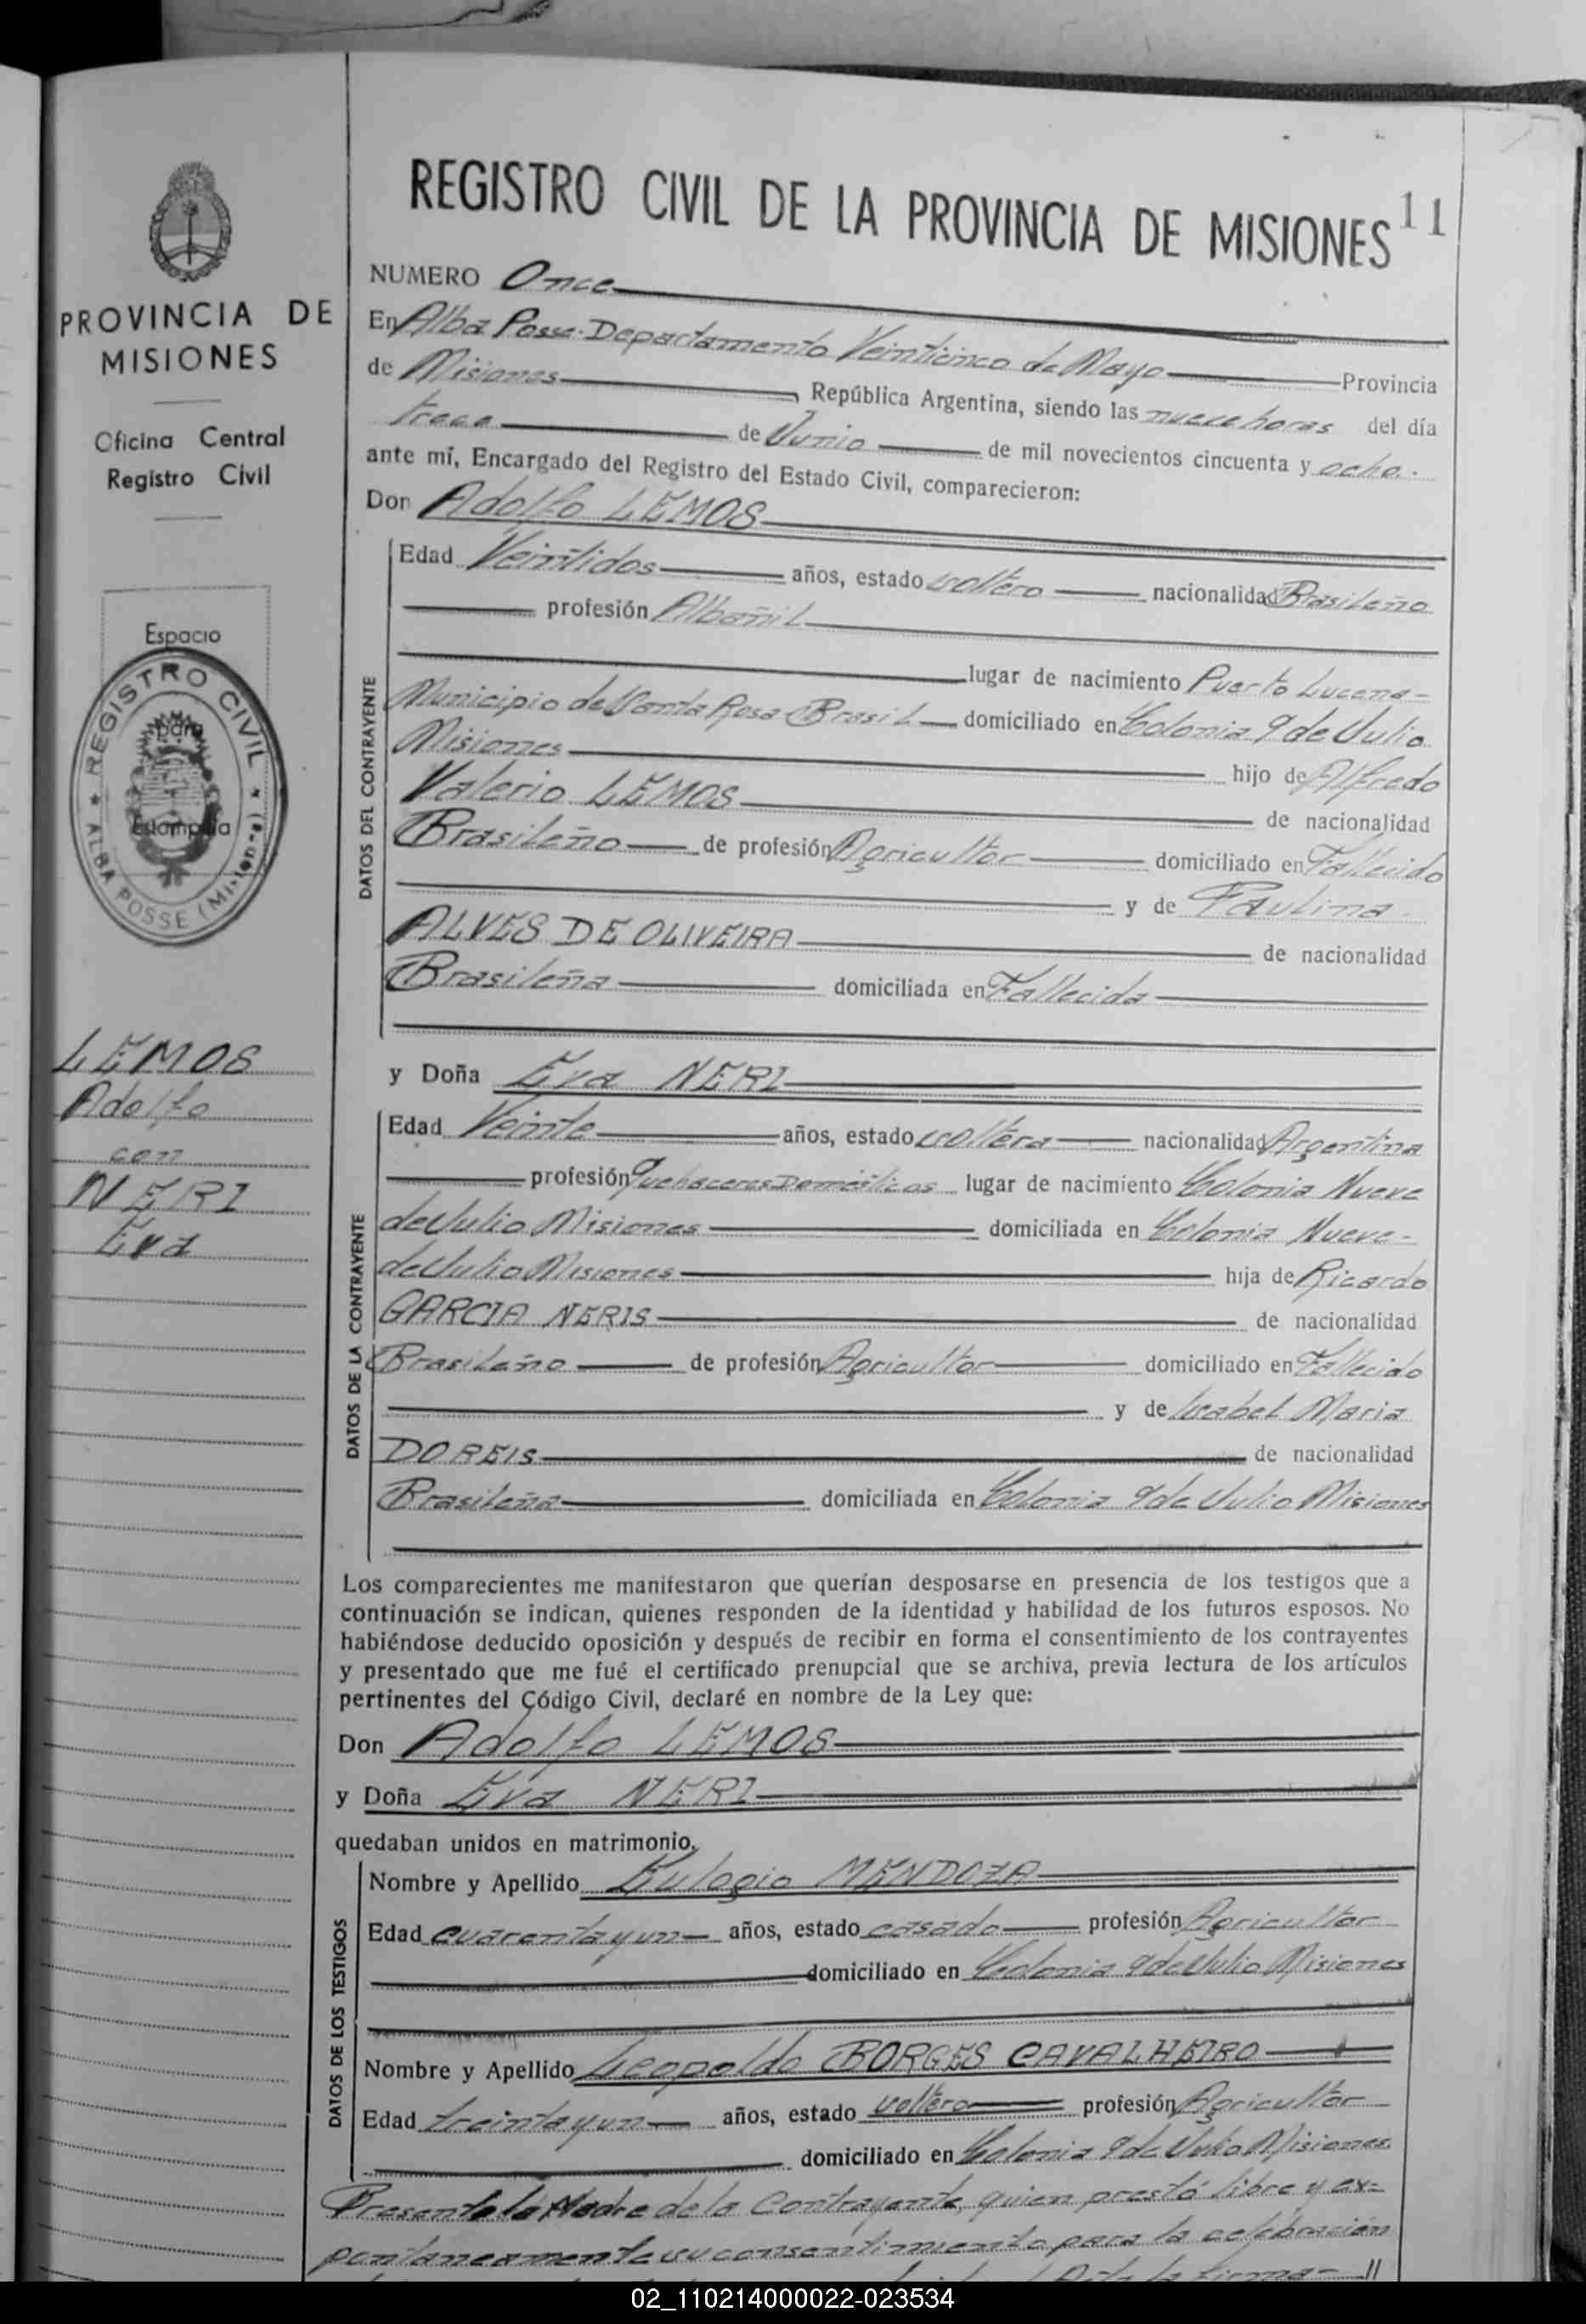 REGISTRO CIVIL DE LA PROVINCIA DE MISIONES 11
PROVINCIA DE
MISIONES
Oficina Central
Registro Civil
Espacio
para
Estampilla
REGISTRO CIVIL
ALBA POSSE (Misiones)
LEMOS
Adolfo
con
NERI
Eva
NUMERO Once
En Alba Posse Departamento Veinticinco de Mayo Provincia
de Misiones, República Argentina, siendo las nueve horas del día
trece de Junio de mil novecientos cincuenta y ocho.
ante mí, Encargado del Registro del Estado Civil, comparecieron:
Don Adolfo LEMOS
DATOS DEL CONTRAYENTE
Edad Veintidos años, estado soltero nacionalidad Brasileño
profesión Albañil
lugar de nacimiento Puerto Lucena-
Municipio de Santa Rosa Brasil domiciliado en Colonia 9 de Julio
Misiones hijo de Alfredo
Valerio LEMOS de nacionalidad
Brasileño de profesión Agricultor domiciliado en Fallecido
y de Paulina
ALVES DE OLIVEIRA de nacionalidad
Brasileña domiciliada en Fallecida
y Doña Eva NERI
DATOS DE LA CONTRAYENTE
Edad Veinte años, estado soltera nacionalidad Argentina
profesión Quehaceres Domésticos lugar de nacimiento Colonia Nueve
de Julio Misiones domiciliada en Colonia Nueve-
de Julio Misiones hija de Ricardo
GARCIA NERIS de nacionalidad
Brasileño de profesión Agricultor domiciliado en Fallecido
y de Isabel Maria
DOREIS de nacionalidad
Brasileña domiciliada en Colonia 9 de Julio Misiones
Los comparecientes me manifestaron que querían desposarse en presencia de los testigos que a
continuación se indican, quienes responden de la identidad y habilidad de los futuros esposos. No
habiéndose deducido oposición y después de recibir en forma el consentimiento de los contrayentes
y presentado que me fué el certificado prenupcial que se archiva, previa lectura de los artículos
pertinentes del Código Civil, declaré en nombre de la Ley que:
Don Adolfo LEMOS
y Doña Eva NERI
quedaban unidos en matrimonio.
DATOS DE LOS TESTIGOS
Nombre y Apellido Eulogio MENDOZA
Edad cuarenta y un años, estado casado profesión Agricultor
domiciliado en Colonia 9 de Julio Misiones
Nombre y Apellido Leopoldo BORGES CAVALHEIRO
Edad treinta y un años, estado soltero profesión Agricultor
domiciliado en Colonia 9 de Julio Misiones
Presente la Madre de la Contrayente, quien prestó libre y ex-
pontaneamente su consentimiento para la celebración
la firma- //
02_110214000022-023534